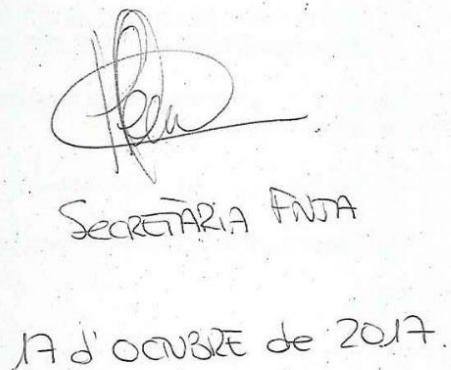 SECRETÀRIA FNJA
17 d'OCTUBRE de 2017.